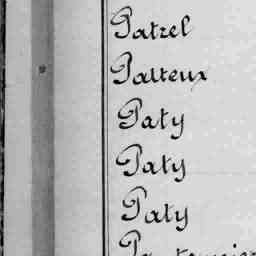 Patrel
Patteux
Paty
Paty
Paty